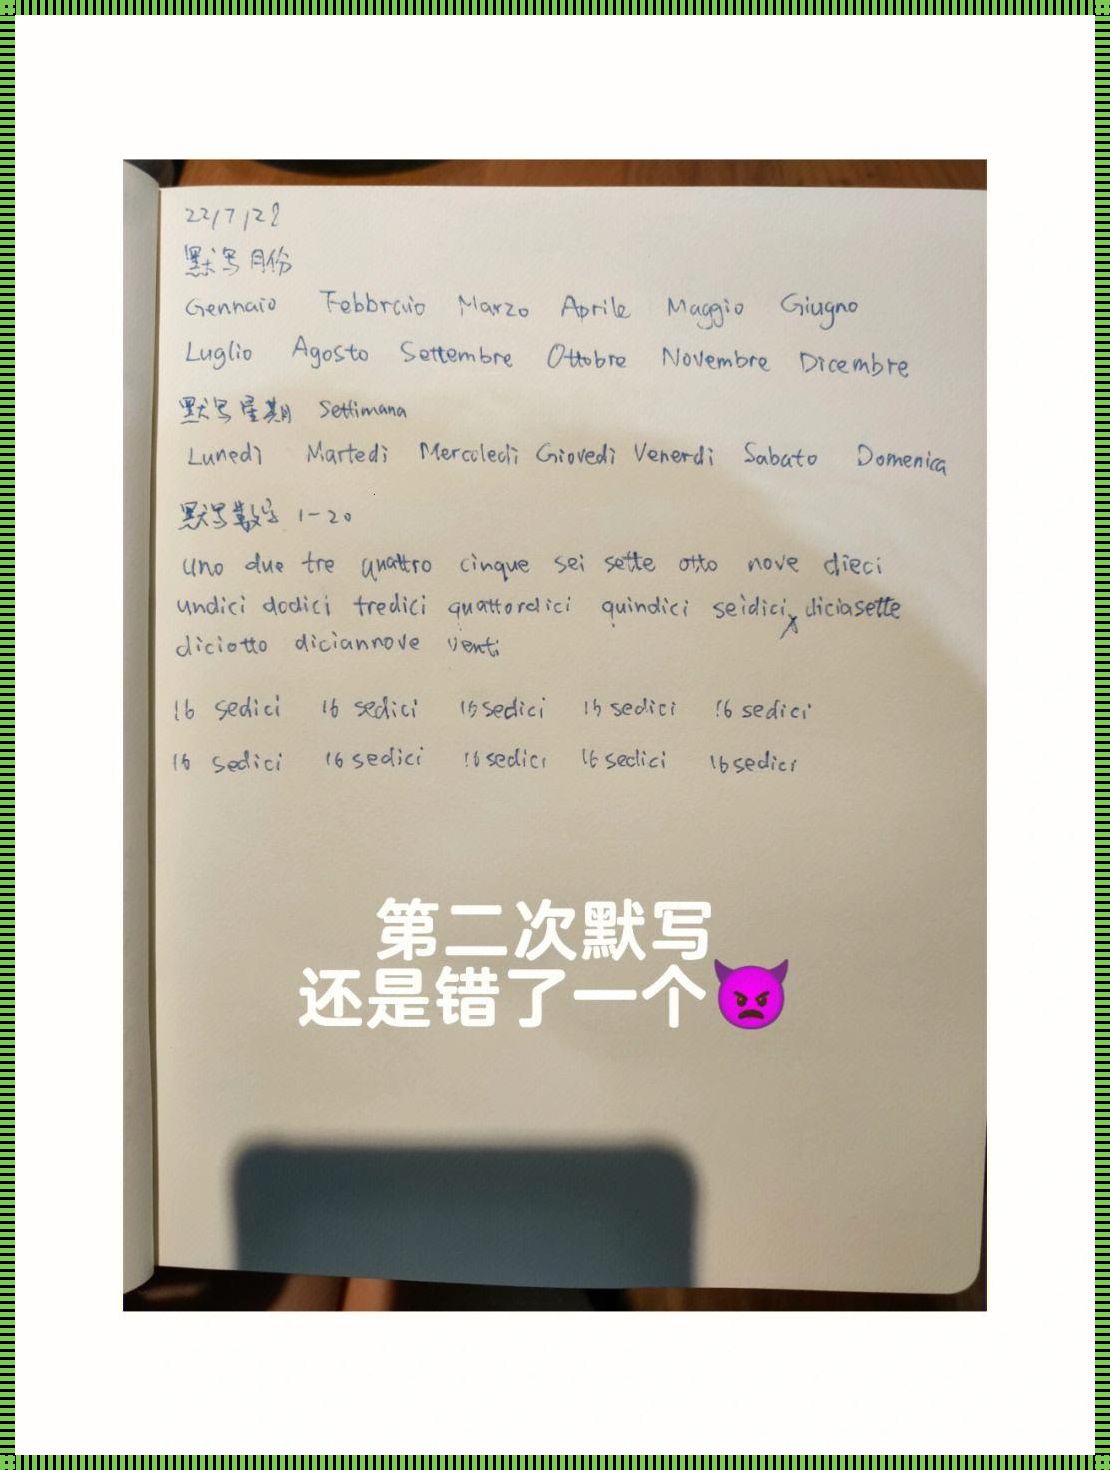 22/7/28
默写月份
Gennaio Febbraio Marzo Aprile Maggio Giugno
Luglio Agosto Settembre Ottobre Novembre Dicembre
默写星期 Settimana
Lunedì Martedì Mercoledì Giovedì Venerdì Sabato Domenica
默写数字 1-20
uno due tre quattro cinque sei sette otto nove dieci
undici dodici tredici quattordici quindici seidici x diciasette
diciotto diciannove venti
16 sedici 16 sedici 16 sedici 16 sedici 16 sedici
16 sedici 16 sedici 16 sedici 16 sedici 16 sedici
第二次默写
还是错了一个